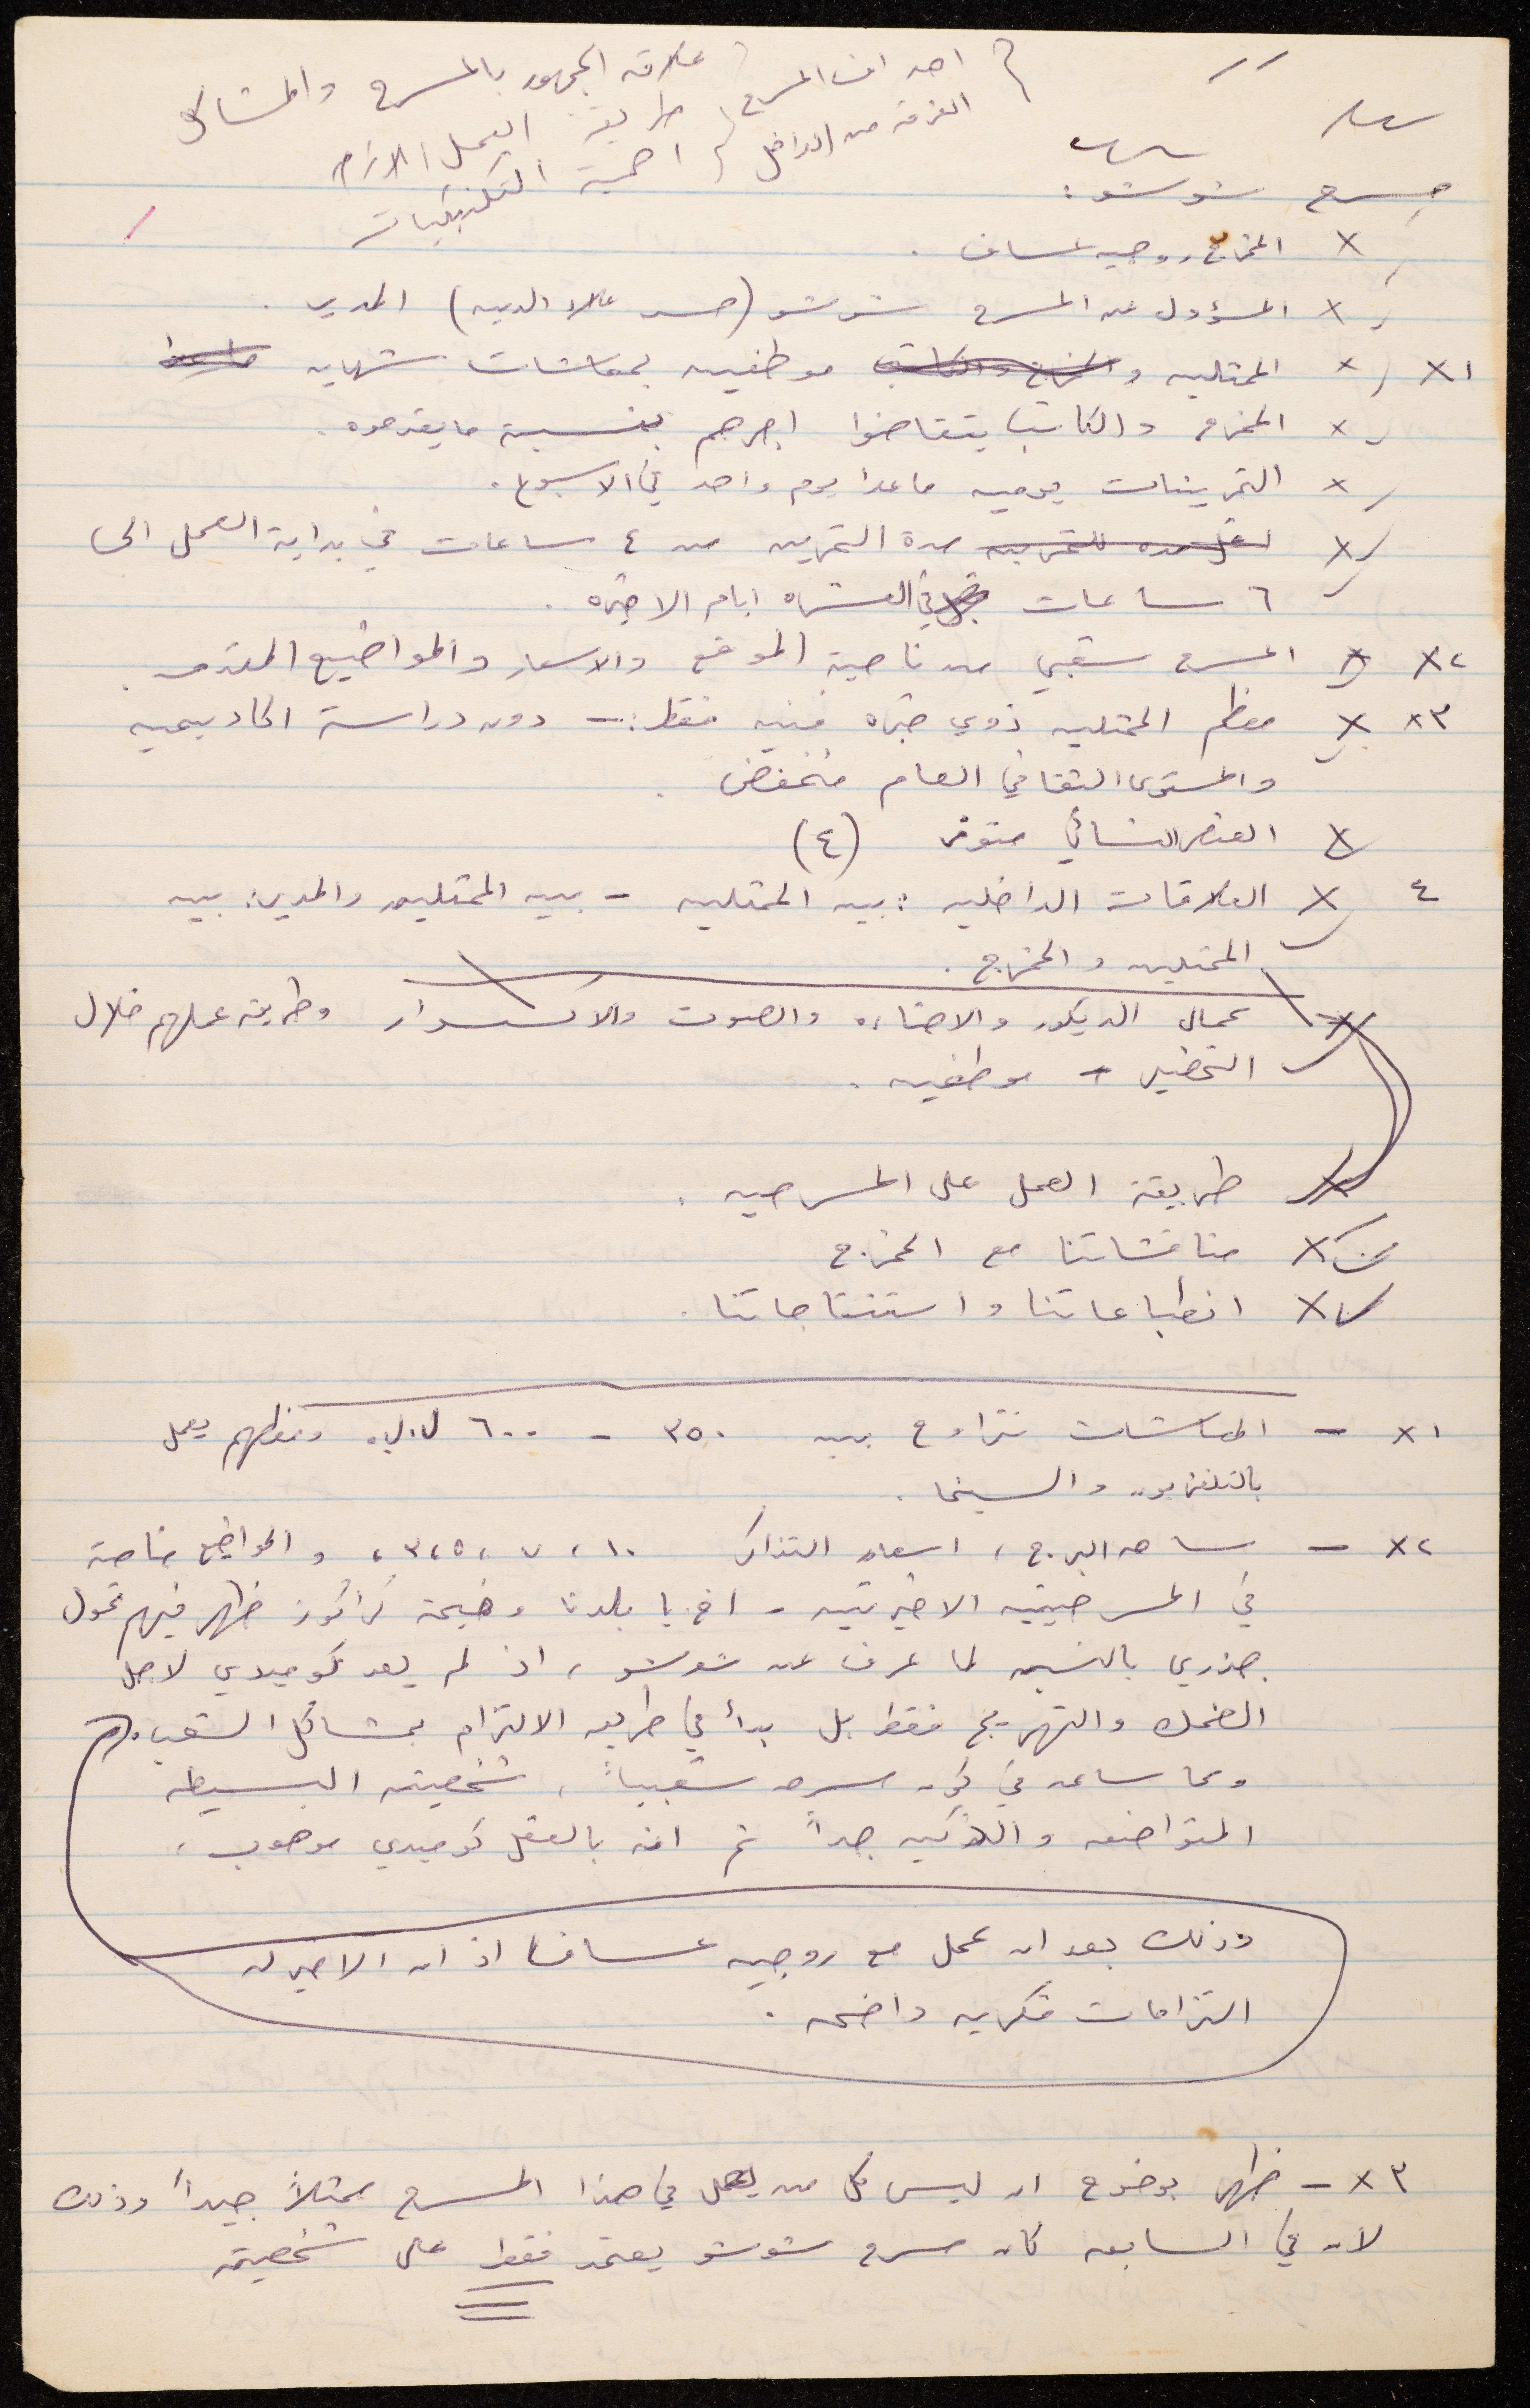 علاقة الجمهور بالمسرح والمشاكل
اهداف المسرح
الفرقة من الداخل
طريقة العمل
اهمية التكنيكيات
مسرح شوشو :
x المخرج روجيه عساف .
x المسؤول عن المسرح شوشو (حسن علاء الدين) المدير .
x١ x الممثلين والمخرج والكاتب موظفين بمعاشات شهريه ما عدا
x المخرج والكاتب يتقاضوا اجرهم بنسبة ما يقدموه .
x التمرينات يوميه ما عدا يوم واحد في الاسبوع .
x مدة التمرين من ٤ ساعات في بداية العمل الى
٦ ساعات في العشره ايام الاخيره .
x٢ x المسرح شعبي من ناحية الموقع والاسعار والمواضيع المقدمه .
x٣ x معظم الممثلين ذوي خبره فنيه فقط :- دون دراسة اكاديميه
والمستوى الثقافي العام منخفض .
x العنصر النسائي متوفر (٤)
٤ x العلاقات الداخليه : بين الممثلين - بين الممثلين والمدير : بين
الممثلين والمخرج .
x عمال الديكور والاضاءه والصوت والاكسسوار وطريقة عملهم خلال
التحضير - موظفين .
x طريقة العمل على المسرحيه .
x مناقشاتنا مع المخرج
x انطباعاتنا واستنتاجاتنا .
x١ - المعاشات تتراوح بين ٣٥٠ - ٦٠٠ ل.ل. ومعظهم يعمل
بالتلفزيون والسينما .
x٢ - ساحه البرج ، اسعار التذاكر ١٠ ، ٧ ، ٥ ، ٣ ، والمواضيع خاصة
في المسرحيتين الاخيرتين . اخ يا بلدنا وخيمة كراكوز ظهر فيهم تحول
جذري بالنسبه لما عرف عن شوشو ، اذ لم يعد كوميدي لاجل
الضحك والتهريج فقط بل بدأ في طريق الالتزام بمشاكل الشعب .
ومما ساعد في كون مسرحه شعبياً ، شخصيته البسيطه
المتواضعه والذكيه جداً ثم انه بالفعل كوميدي موهوب ،
وذلك بعد ان عمل مع روجيه عساف اذ ان الاخير له
التزامات فكريه واضحه .
x٣ - ظهر بوضوح ان ليس كل من يعمل في هذا المسرح ممثلاً جيداً وذلك
لان في السابق كان مسرح شوشو يعتمد فقط على شخصيته